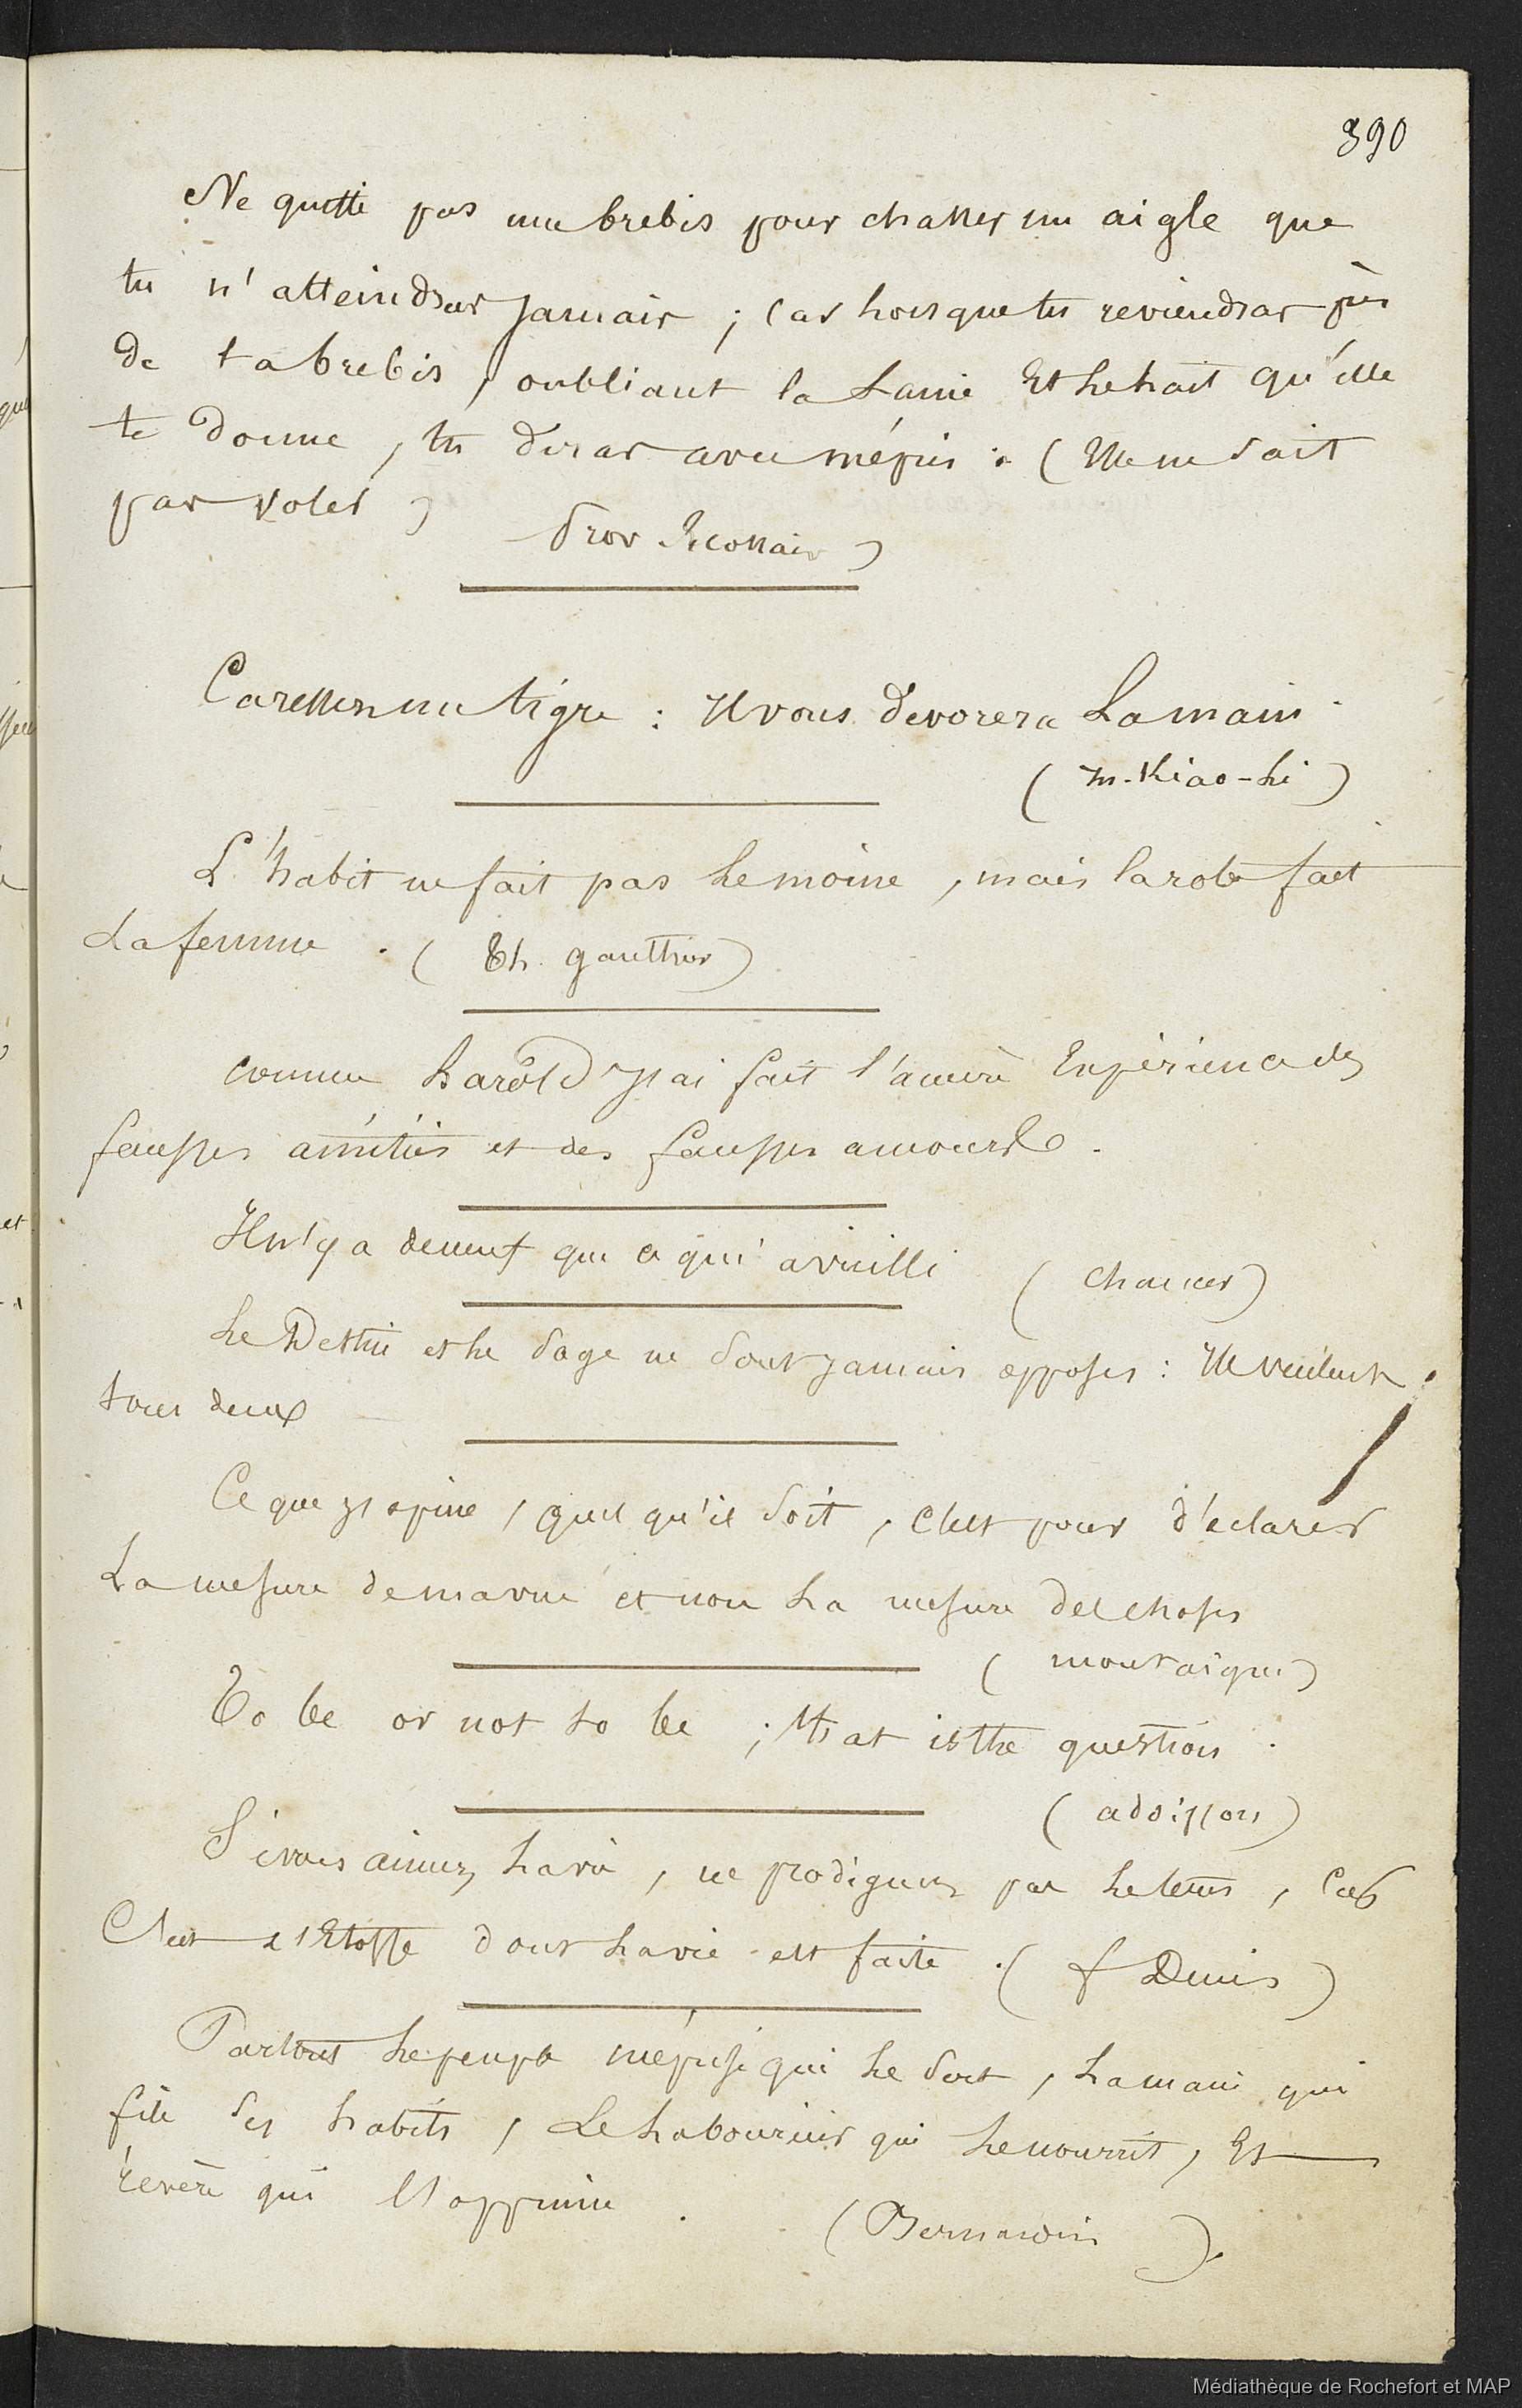 390
Ne quitte pas une brebis pour chasser un aigle que
tu n'atteindras jamais ; car lorsque tu reviendras près
de ta brebis, oubliant la laine et le lait qu'elle
te donne, tu diras avec mépris : (Elle ne sait
pas voler)
Prov Ecossais)
Caressez un tigre : il vous devorera la main.
(m. Kiao-li)
L'habit ne fait pas le moine, mais la robe fait
la femme. (Th. Gautthier)
comme harold j'ai fait l'amère Expérience des
fausses amitiés et des fausses amours.
Il n'y a de neuf que ce qui a vieilli
(chaucer)
Le Destin et le sage ne sont jamais opposés : Ils veulent
tous deux
Ce que j'opine, quel qu'il soit, c'est pour déclarer
La mesure de ma vue et non la mesure des choses
(montaigne)
To be or not to be ; that is the question.
(addisson)
Si vous aimez la vie, ne prodiguez pas le tems, Car
C'est l'Etoffe dont la vie est faite. (f Denis)
Partout le peuple méprise qui le sert, la main qui
file ses habits, Le laboureur qui le nourrit, Et
révère qui l'opprime.
(Bernardin).
que
et
Médiathèque de Rochefort et MAP